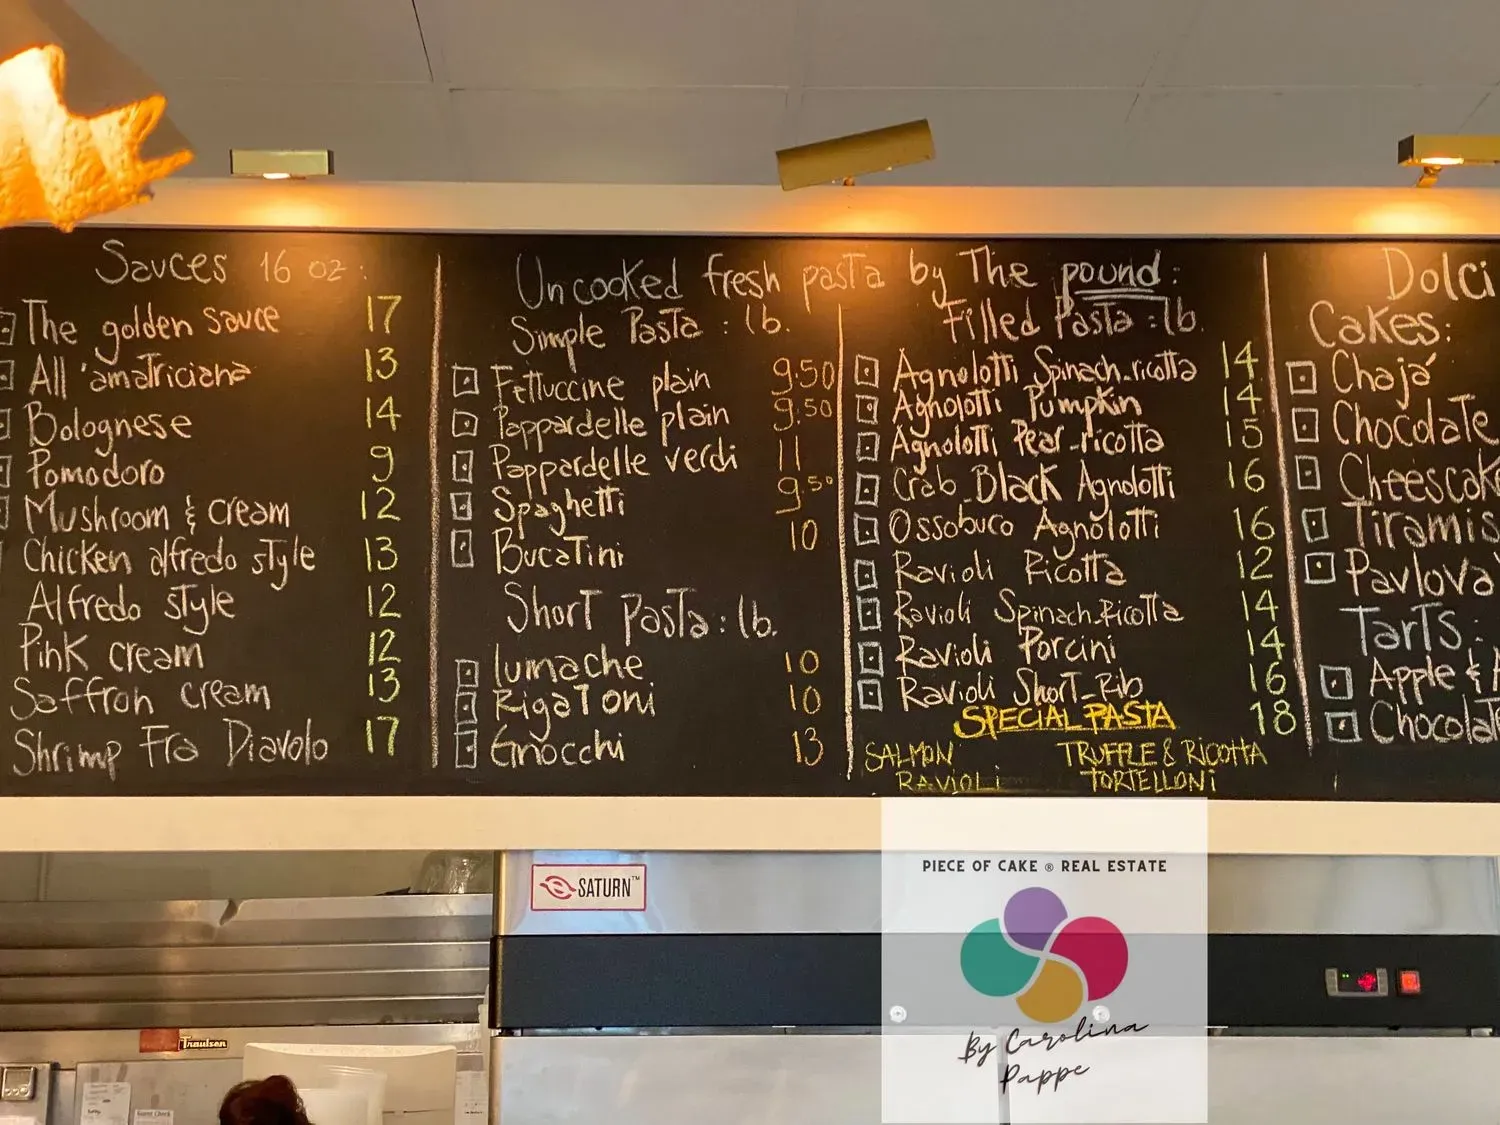 Sauces 16 oz:
The golden sauce 17
All'amatriciana 13
Bolognese 14
Pomodoro 9
Mushroom & cream 12
Chicken alfredo style 13
Alfredo style 12
Pink cream 12
Saffron cream 13
Shrimp Fra Diavolo 17
Uncooked fresh pasta by The pound:
Simple Pasta: lb.
Fettuccine plain 9.50
Pappardelle plain 9.50
Pappardelle verdi 11
Spaghetti 9.50
Bucatini 10
Short pasta: lb.
lumache 10
Rigatoni 10
Gnocchi 13
Filled Pasta: lb.
Agnolotti Spinach-ricotta 14
Agnolotti Pumpkin 14
Agnolotti Pear-ricotta 15
Crab-Black Agnolotti 16
Ossobuco Agnolotti 16
Ravioli Ricotta 12
Ravioli Spinach-Ricotta 14
Ravioli Porcini 14
Ravioli Short-Rib 16
SPECIAL PASTA 18
SALMON
RAVIOLI
TRUFFLE & RICOTTA
TORTELLONI
Dolci
Cakes:
Chajá
Chocolate
Cheescak
Tiramis
Pavlova
Tarts:
Apple & A
Chocolat
SATURN™
Traulsen
Guest Check
PIECE OF CAKE ® REAL ESTATE
By Carolina
Pappe